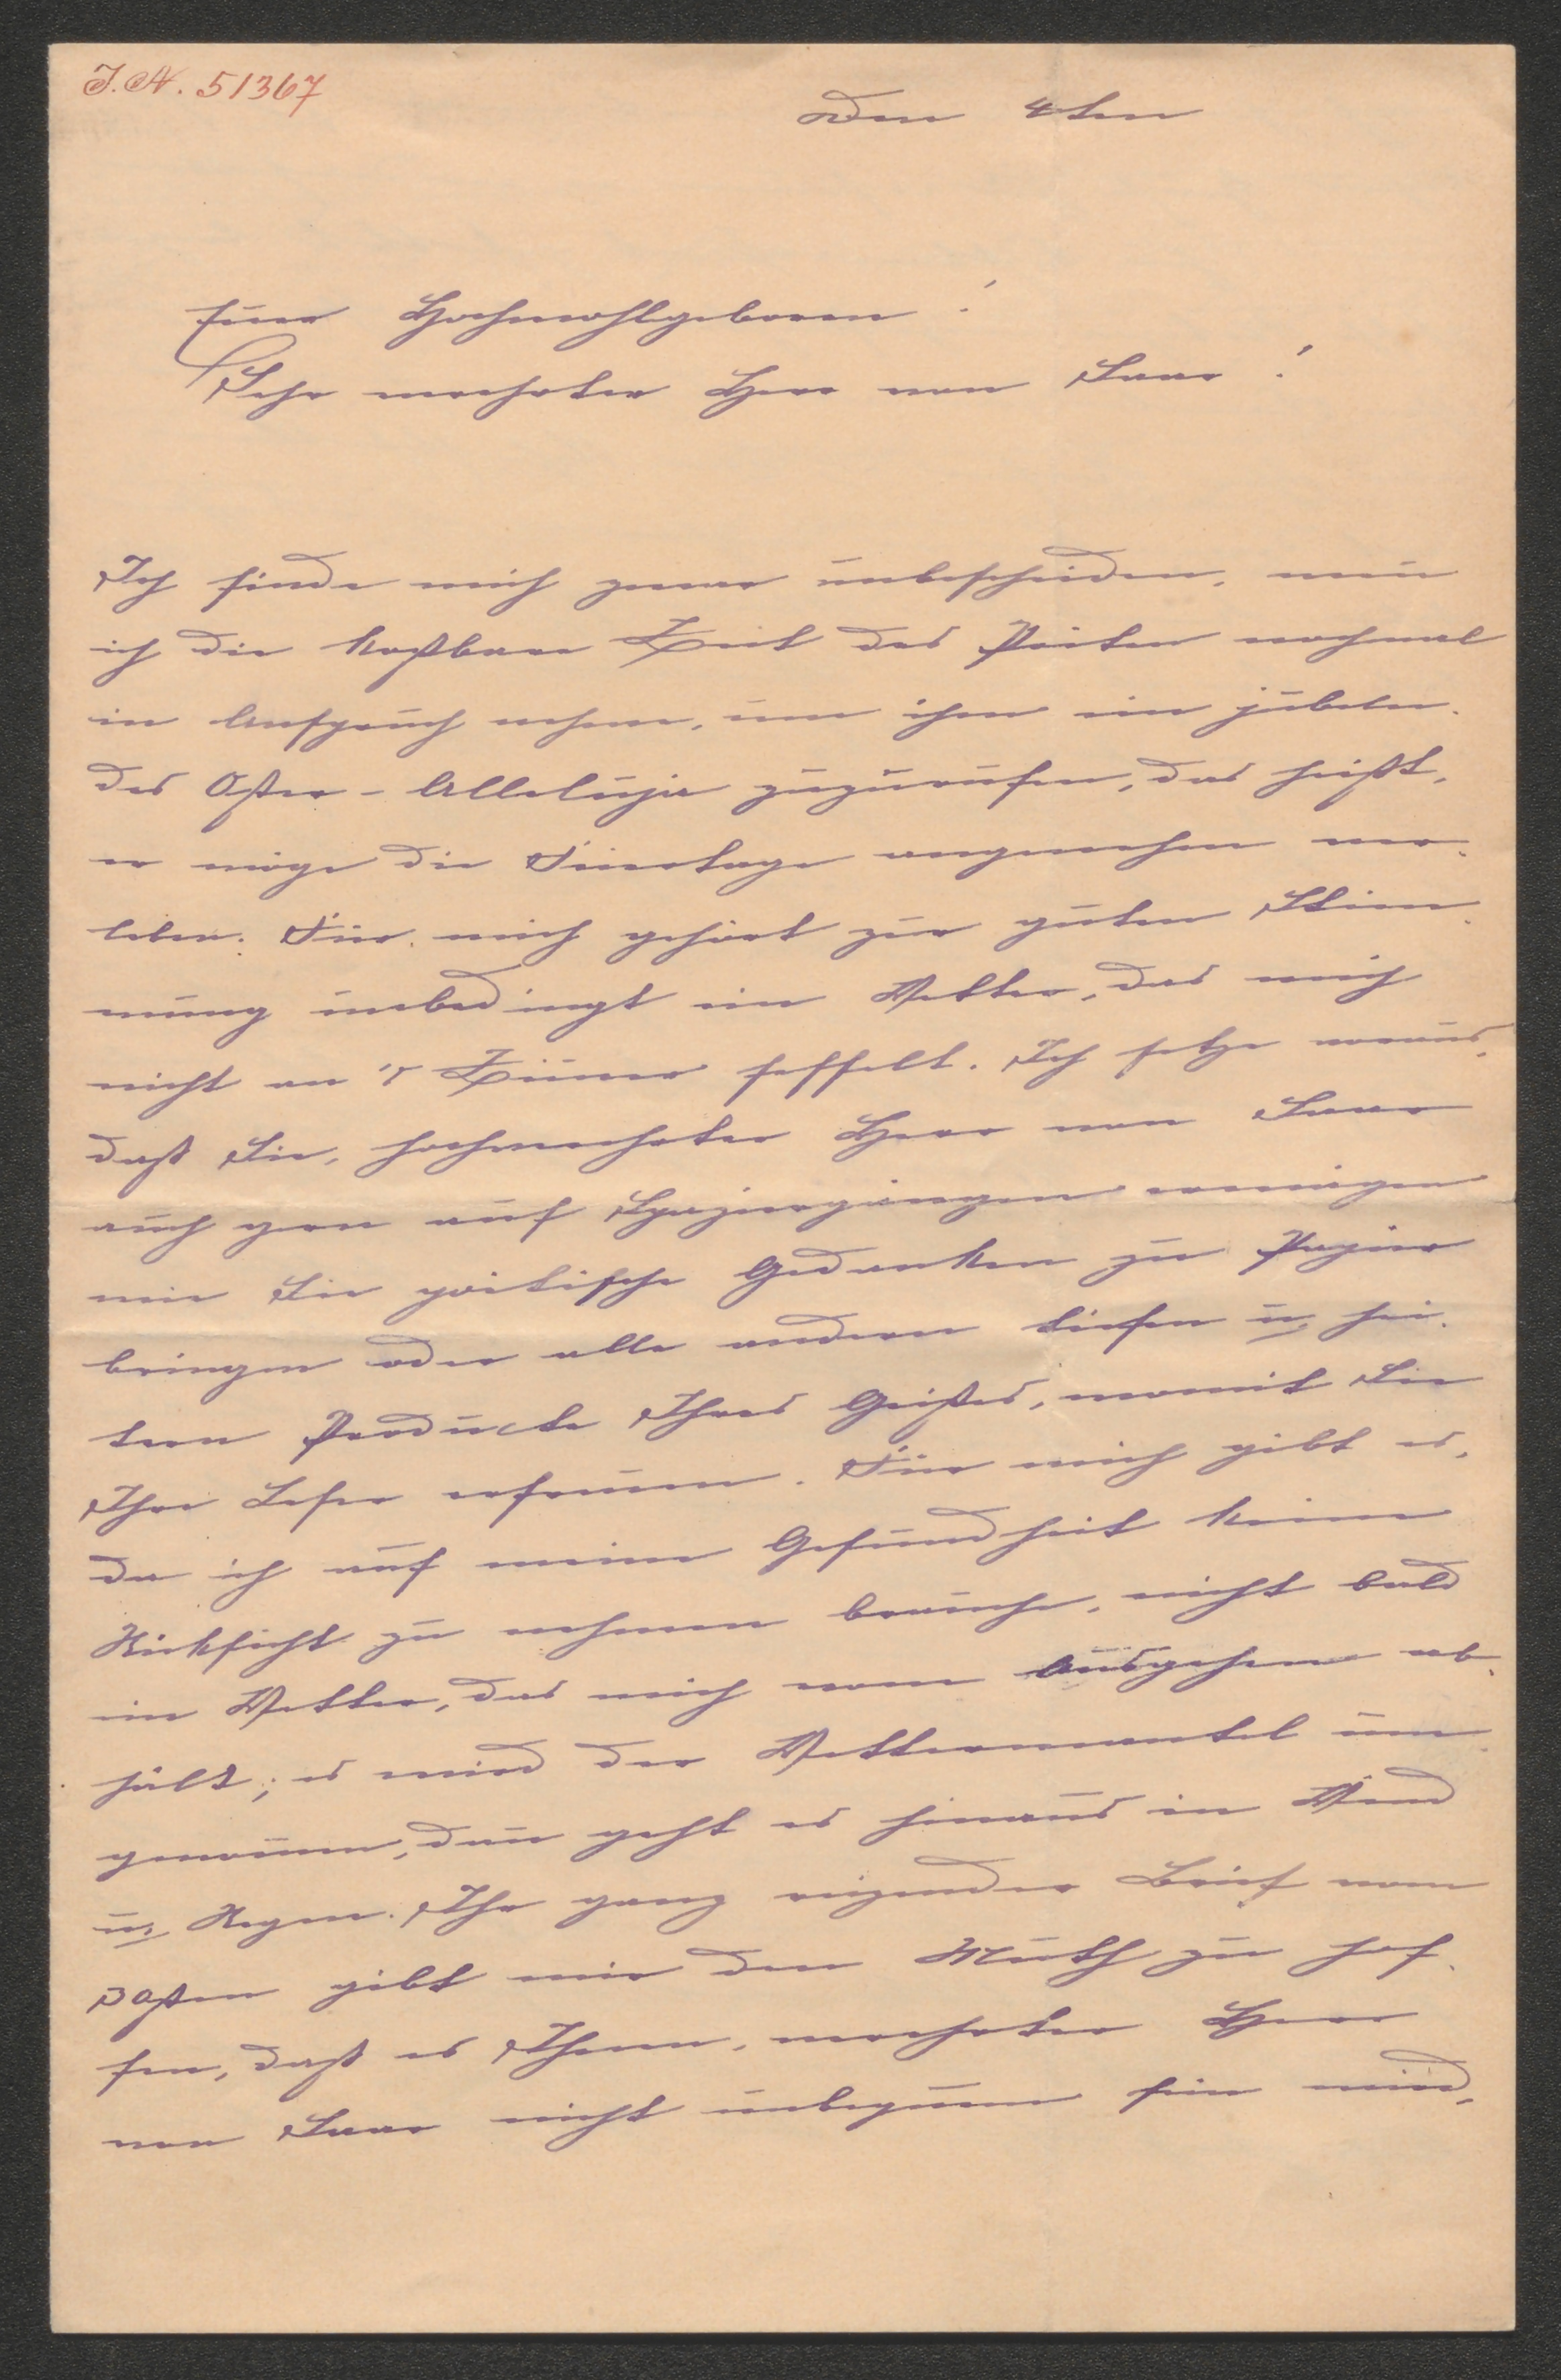 J.N. 51367
Den 4ten
Euer Hochwohlgeboren!
Sehr verehrter Herr von Saar!
Ich finde mich zwar unbescheiden, weñ
ich die kostbare Zeit des Poeten nochmal
in Anspruch nehme, um ihm ein jubeln-
des Oster-Alleluja zuzurufen, das heißt,
er möge die Feiertage angenehm ver-
leben. Für mich gehört zur guten Stim-
mung unbedingt ein Wetter, das mich
nicht an's Zim̄er fesselt. Ich setze voraus,
daß Sie, hochverehrter Herr von Saar
auch gern auf Spaziergängen erwägen
wie Sie poetische Gedanken zu Papier
bringen oder alle andern tiefen u. hei-
tern Producte Ihres Geistes, womit Sie
Ihre Leser erfreuen. Für mich gibt es,
da ich auf meine Gesundheit keine
Rücksicht zu nehmen brauche, nicht bald
ein Wetter, das mich vom Ausgehen ab-
hält; es wird der Wettermantel um-
genom̄en, dañ geht es hinaus in Wind
u. Regen. Ihr ganz reizender Brief vom
30sten gibt mir den Muth zu hof-
fen, daß es Ihnen, verehrter Herr
von Saar nicht unbequem sein wird,